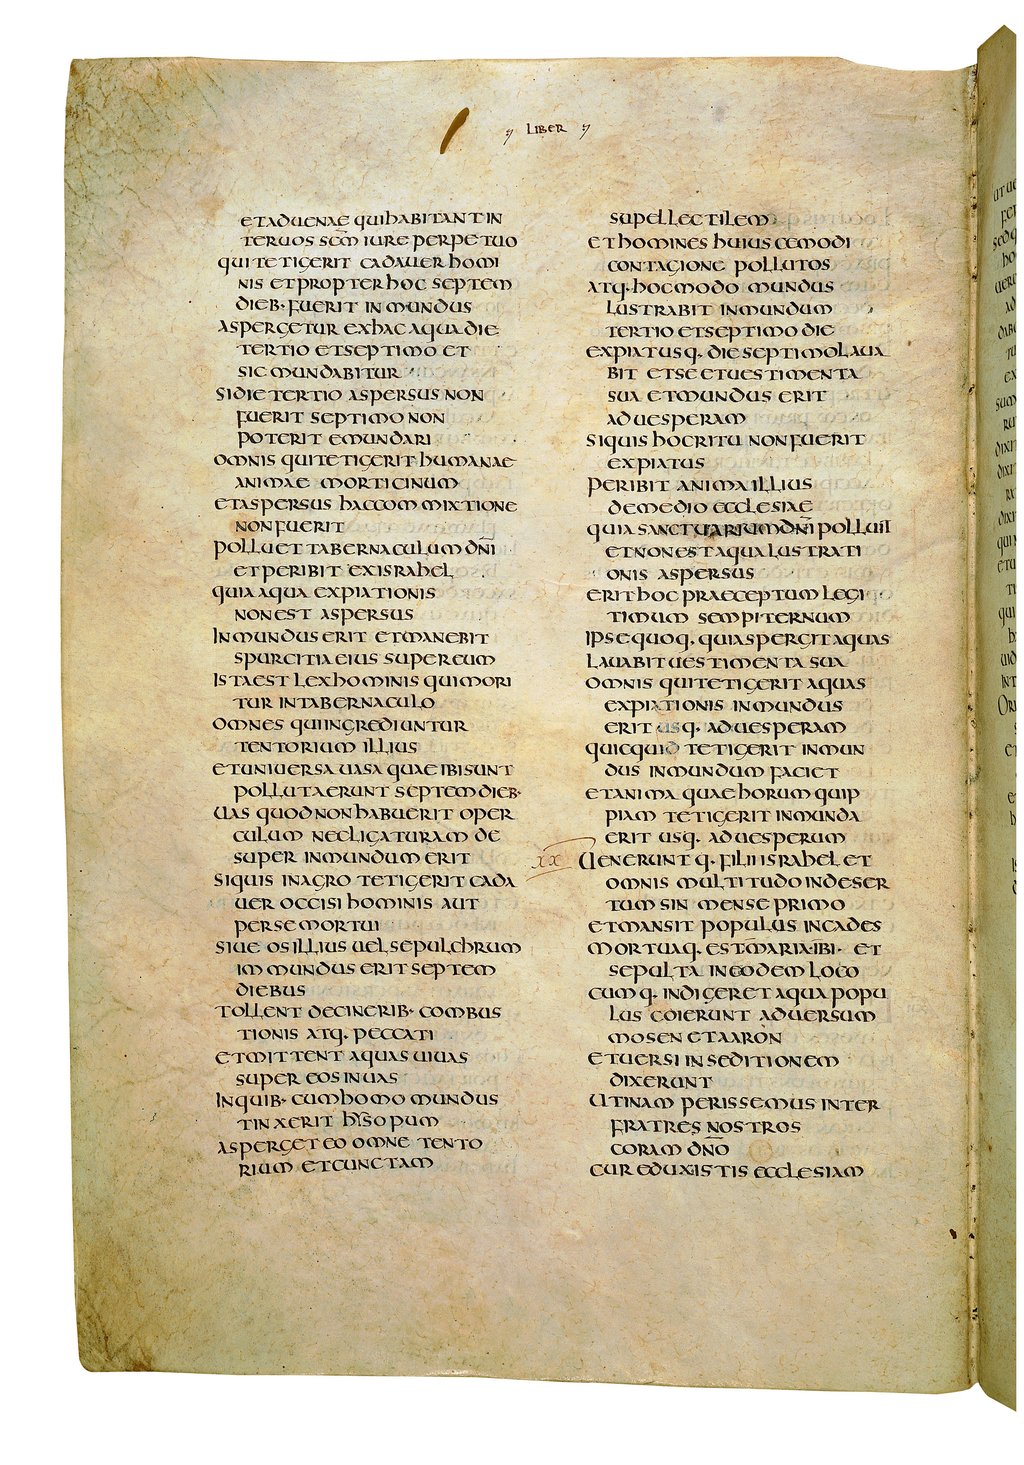 LIBER
ETADUENAE QUIHABITANTIN
TERUOS SCM IURE PERPETUO
QUITETIGERIT CADAUER HOMI
NIS ETPROPTERHOC SEPTEM
DIEB· FUERIT INMUNDUS
ASPERGETUR EXHAC AQUA DIE
TERTIO ETSEPTIMO ET
SIC MUNDABITUR
SIDIETERTIO ASPERSUS NON
FUERIT SEPTIMO NON
POTERIT EMUNDARI
OMNIS QUITETIGERIT HUMANAE
ANIMAE MORTICINUM
ETASPERSUS HACCOMMIXTIONE
NONFUERIT
POLLUET TABERNACULUM DÑI
ETPERIBIT EXISRAHEL
QUIA AQUA EXPIATIONIS
NONEST ASPERSUS
INMUNDUS ERIT ETMANEBIT
SPURCITIA EIUS SUPER EUM
ISTAEST LEXHOMINIS QUIMORI
TUR INTABERNACULO
OMNES QUIINGREDIUNTUR
TENTORIUM ILLIUS
ETUNIUERSA UASA QUAE IBISUNT
POLLUTAERUNT SEPTEM DIEB·
UAS QUODNONHABUERIT OPER
CULUM NECLIGATURAM DE
SUPER INMUNDUM ERIT
SIQUIS INAGRO TETIGERIT CADA
UER OCCISI HOMINIS AUT
PERSE MORTUI
SIUE OS ILLIUS UEL SEPULCHRUM
IMMUNDUS ERIT SEPTEM
DIEBUS
TOLLENT DECINERIB· COMBUS
TIONIS ATQ· PECCATI
ETMITTENT AQUAS UIUAS
SUPER EOS INUAS
INQUIB· CUMHOMO MUNDUS
TINXERIT HYSOPUM
ASPERGET EO OMNE TENTO
RIUM ETCUNCTAM
SUPELLECTILEM
ETHOMINES HUIUSCEMODI
CONTAGIONE POLLUTOS
ATQ· HOCMODO MUNDUS
LUSTRABIT INMUNDUM
TERTIO ETSEPTIMO DIE
EXPIATUSQ· DIE SEPTIMO LAUA
BIT ETSE ETUESTIMENTA
SUA ETMUNDUS ERIT
ADUESPERAM
SIQUIS HOCRITU NONFUERIT
EXPIATUS
PERIBIT ANIMA ILLIUS
DEMEDIO ECCLESIAE
QUIA SANCTUARIUM DÑI POLLUIT
ETNONEST AQUA LUSTRATI
ONIS ASPERSUS
ERIT HOC PRAECEPTUM LEGI
TIMUM SEMPITERNUM
IPSEQUOQ· QUIASPERGIT AQUAS
LAUABIT UESTIMENTA SUA
OMNIS QUITETIGERIT AQUAS
EXPIATIONIS INMUNDUS
ERIT USQ· ADUESPERAM
QUICQUID TETIGERIT INMUN
DUS INMUNDUM FACIET
ETANIMA QUAEHORUM QUIP
PIAM TETIGERIT INMUNDA
ERIT USQ· ADUESPERUM
XX UENERUNTQ· FILII ISRAHEL ET
OMNIS MULTITUDO INDESER
TUM SIN MENSE PRIMO
ETMANSIT POPULUS INCADES
MORTUAQ· EST MARIA IBI· ET
SEPULTA INEODEM LOCO
CUMQ· INDIGERET AQUA POPU
LUS COIERUNT ADUERSUM
MOSEN ETAARON
ETUERSI INSEDITIONEM
DIXERUNT
UTINAM PERISSEMUS INTER
FRATRES NOSTROS
CORAM DÑO
CUR EDUXISTIS ECCLESIAM